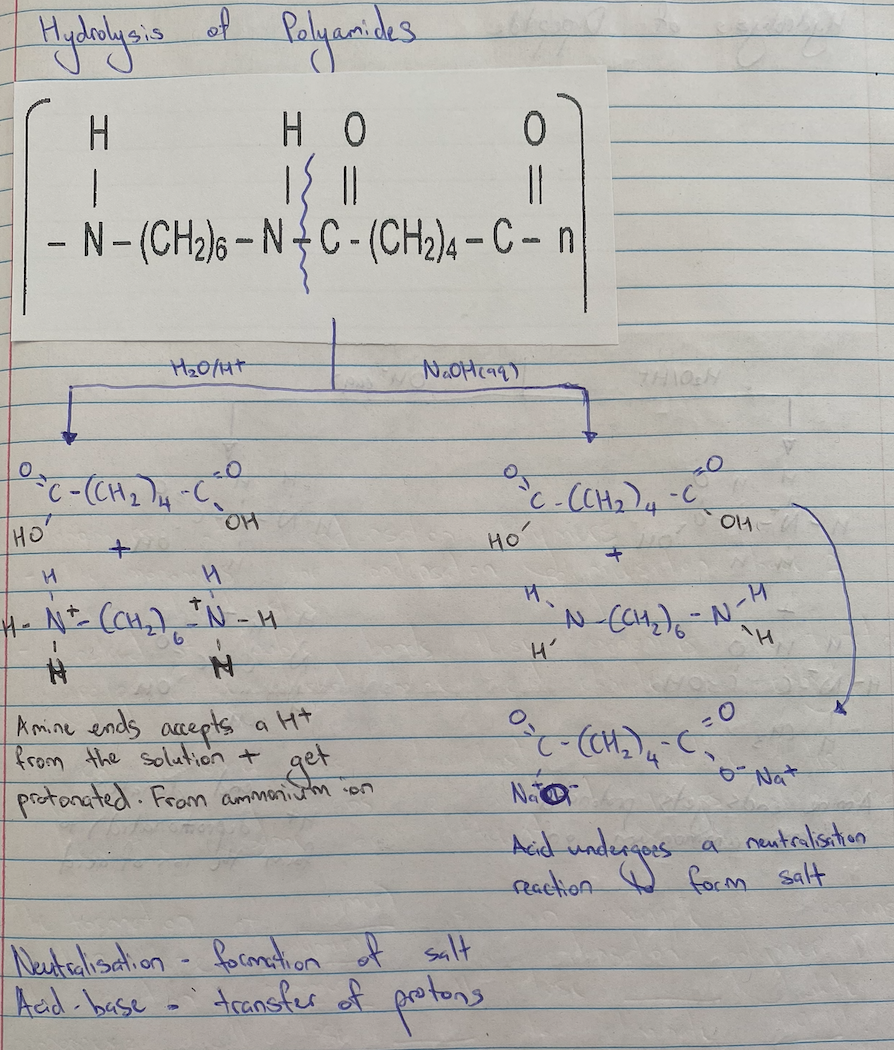 Hydrolysis of Polyamides
H H O O
| | || ||
– N – (CH2)6 – N – C - (CH2)4 – C – n
H2O/H+ NaOH(aq)
O O O O
C - (CH2)4 - C C - (CH2)4 - C
HO OH HO OH
+ +
H H H H
H - N+ - (CH2)6 - +N - H N - (CH2)6 - N
H H H H
Amine ends accepts a H+
from the solution + get
protonated. From ammonium ion
O O
C - (CH2)4 - C
Na+O- O- Na+
Acid undergoes a neutralisation
reaction to form salt
Neutralisation - formation of salt
Acid-base - transfer of protons